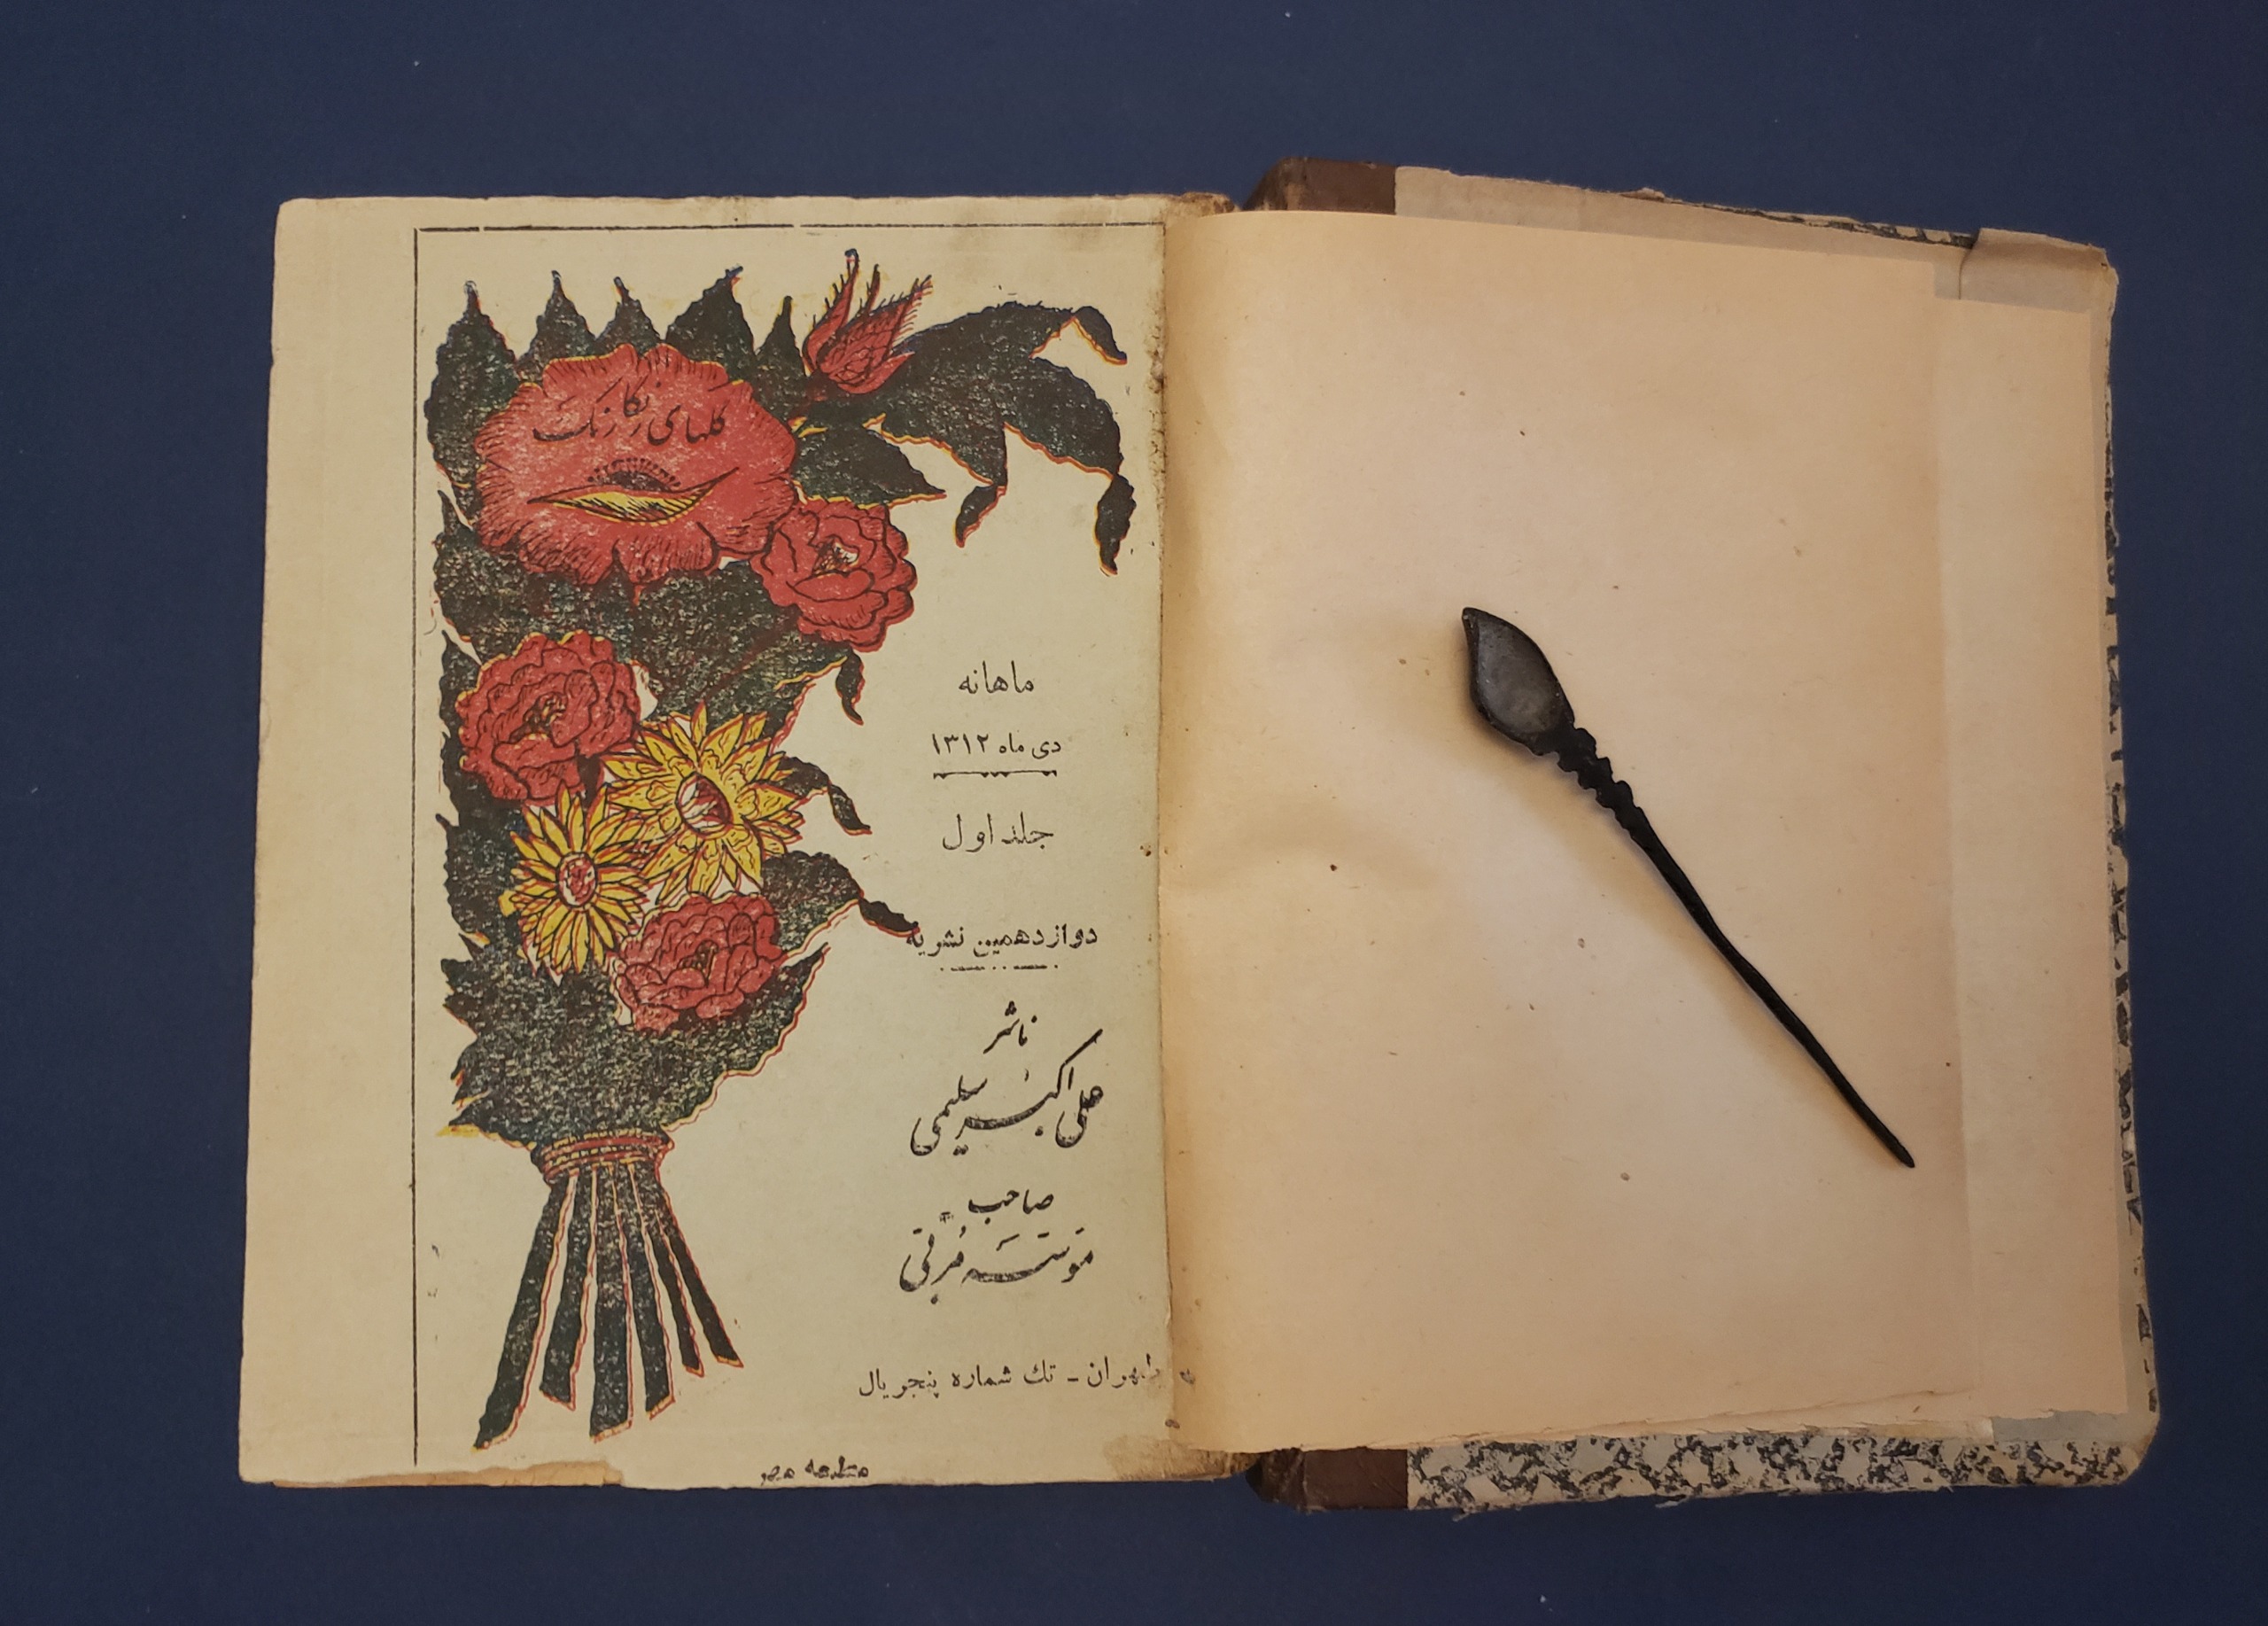 گلهای رنگارنگ
ماهانه
دی ماه ۱۳۱۲
جلد اول
دوازدهمین نشریه
ناشر
علی اکبر سلیمی
صاحب
مؤسسه شرقی
طهران - تك شماره پنجریال
مطبعه مهر